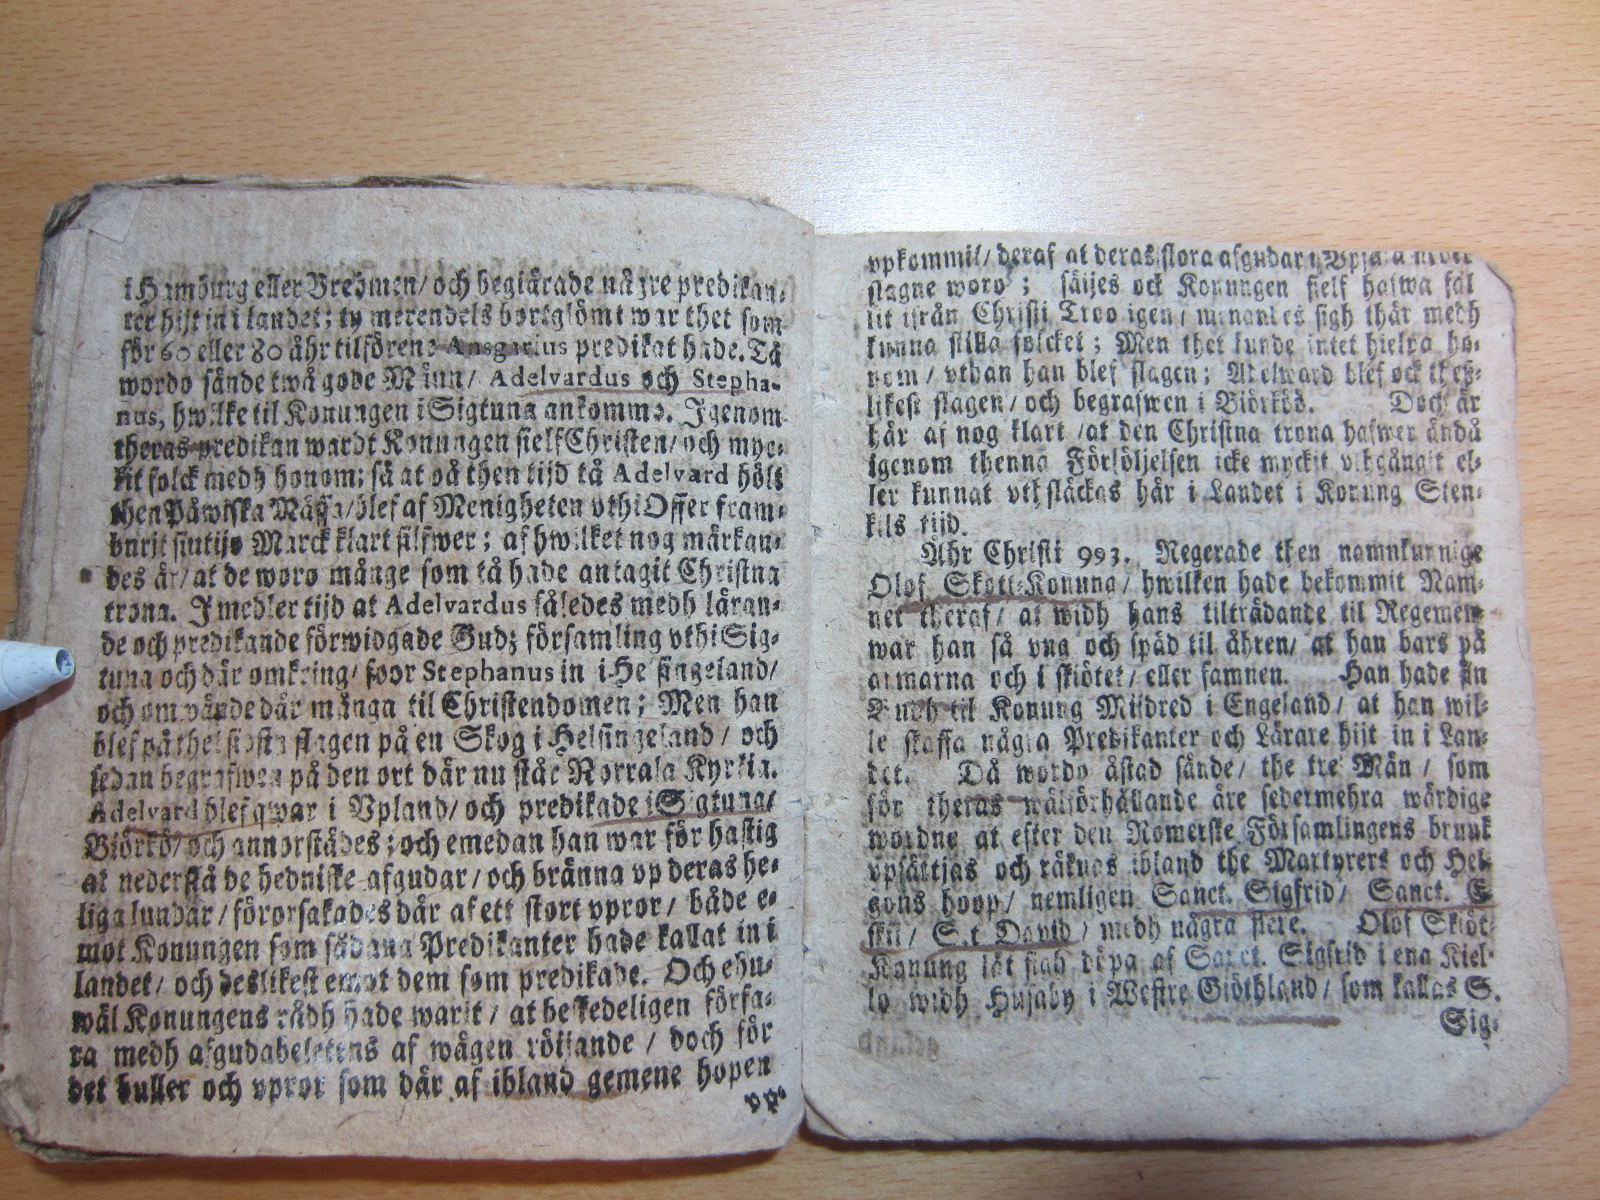 i Hamburg eller Bredmen/ och begiärade någre predikan-
rer hijt in i landet; ty merendels bortglömt war thet som
för 60 eller 80 åhr tilförene Ansgarius predikat hade. Tå
wordo sände twå gode Männ/ Adelvardus och Stepha-
nus, hwilke til Konungen i Sigtuna ankommo. Igenom
theras predikan wardt Konungen sielf Christen/ och myc-
kit folck medh honom; så at på then tijd tå Adelvard hölt
then Påwiska Mässa/ blef af Menigheten vthi Offer fram-
burit siutijo Marck klart silfwer; af hwilket nog märkan-
des är/ at de woro månge som tå hade antagit Christna
trona. Imedler tijd at Adelvardus således medh läran-
de och predikande förwidgade Gudz församling vthi Sig-
tuna och där omkring/ foor Stephanus in i Helsingeland/
och omvände där många til Christendomen; Men han
blef på thet sidsta slagen på en Skog i Helsingeland/ och
sedan begrafwen på den ort där nu står Norrala Kyrkia.
Adelvard blef qwar i Vpland/ och predikade i Sigtuna/
Biörkö/ och annorstädes; och emedan han war för hastig
at nederslå de hedniske afgudar/ och bränna vp deras he-
liga lundar/ förorsakades där af ett stort vpror/ både e-
mot Konungen som sådana Predikanter hade kallat in i
landet/ och deslikest emot dem som predikade. Och ehu-
wäl Konungens rådh hade warit/ at beskedeligen förfa-
ra medh afgudabeletens af wägen röijande/ doch för
det buller och vpror som där af ibland gemene hopen
vp-
vpkommit/ deraf at deras stora afgudar i Vpsala neder
slagne woro; säijes ock Konungen sielf hafwa fal
lit ifrån Christi Troo igen/ menandes sigh thär medh
kunna stilla folcket; Men thet kunde intet hielpa ho-
nom/ vthan han blef slagen; Adelward blef ock theß-
likest slagen/ och begrafwen i Biörköö. Doch är
här af nog klart/ at den Christna trona hafwer ändå
igenom thenna Förföljelsen icke myckit vthgångit el-
ler kunnat vthsläckas här i Landet i Konung Sten-
kils tijd.
Åhr Christi 993. Regerade then namnkunnige
Olof Skott-Konung/ hwilken hade bekommit Nam-
net theraf/ at widh hans tilträdande til Regemen
war han så vng och späd til åhren/ at han bars på
armarna och i skiötet/ eller famnen. Han hade än
Budh til Konung Mildred i Engeland/ at han wil-
le skaffa några Predikanter och Lärare hijt in i Lan-
det. Då wordo åstad sände/ the tre Män/ som
för theras wälförhållande äre sedermehra wärdige
wordne at efter den Romerske Församlingens bruuk
vpsättjas och räknas ibland the Martyrers och Hel-
gons hoop/ nemligen Sanct. Sigfrid/ Sanct. E
skil/ S.t David/ medh några flere. Olof Skiöt-
Konung lät sigh döpa af Sanct. Sigfrid i ena Kiel-
lo widh Husaby i Westre Giöthland/ som kallas S.
Sig-